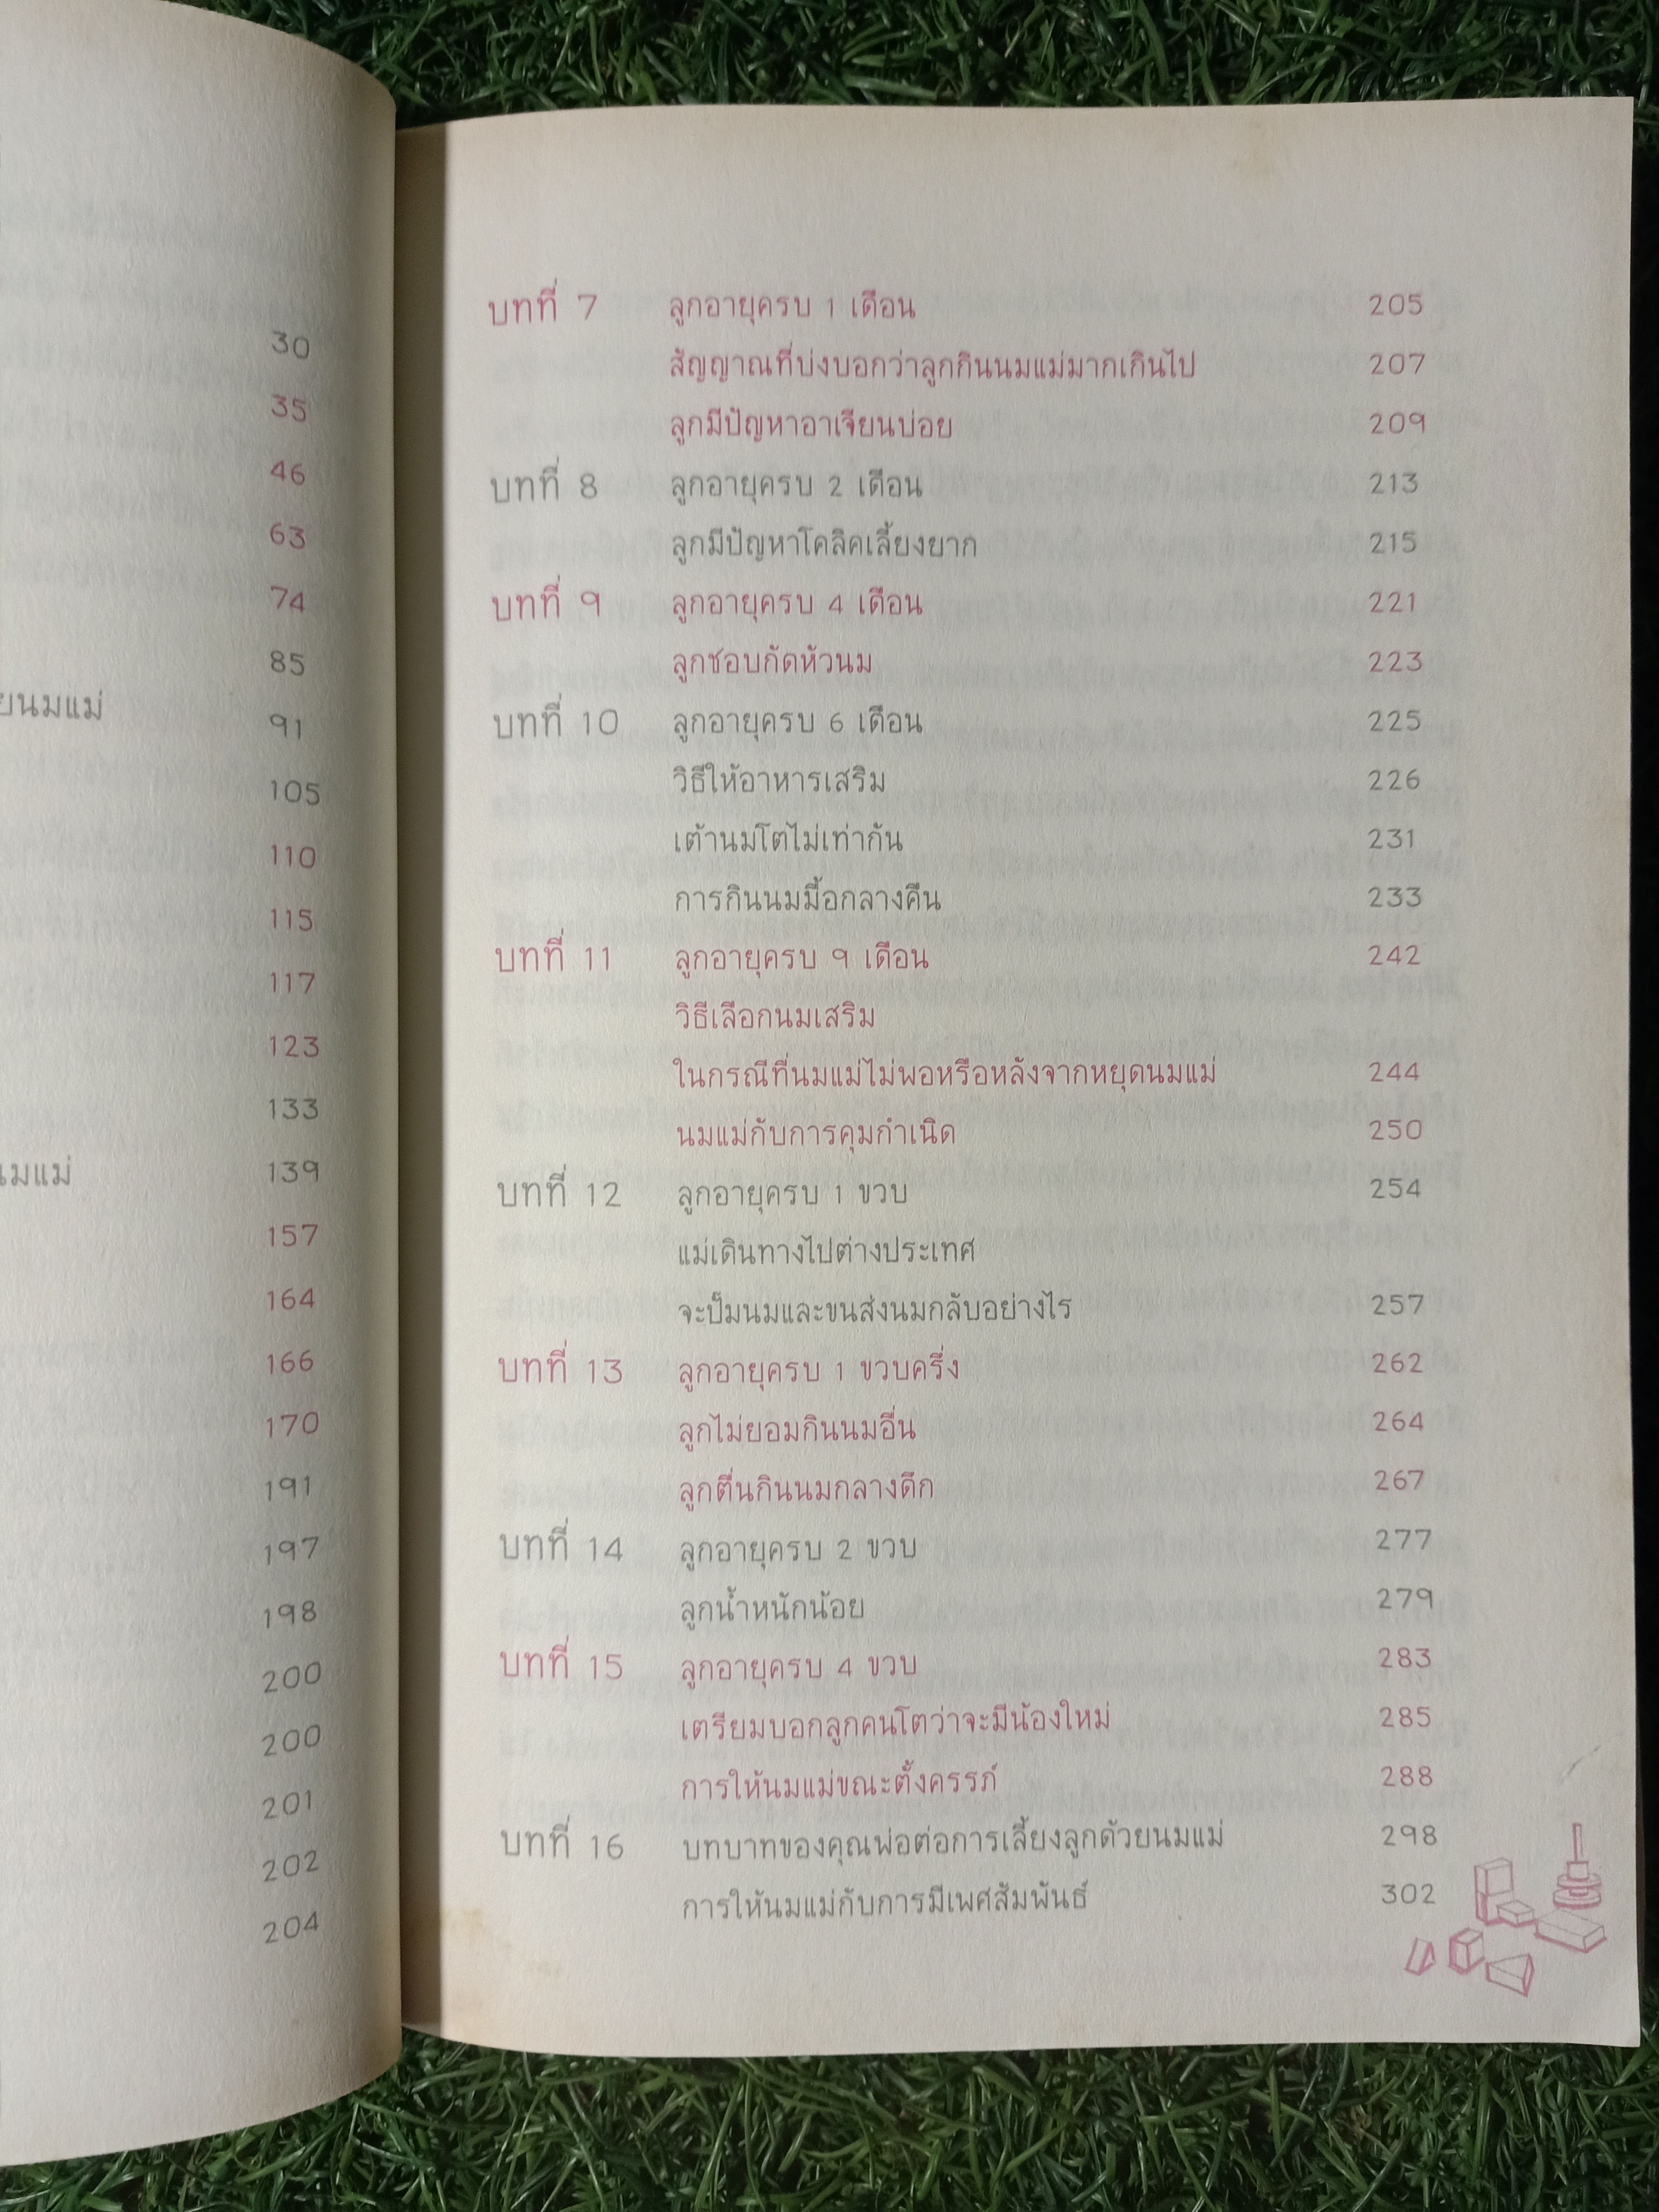 30
35
46
63
74
85
ยนมแม่ 91
105
110
115
117
123
133
นมแม่ 139
157
164
166
170
191
197
198
200
200
201
202
204
บทที่ 7 ลูกอายุครบ 1 เดือน 205
สัญญาณที่บ่งบอกว่าลูกกินนมแม่มากเกินไป 207
ลูกมีปัญหาอาเจียนบ่อย 209
บทที่ 8 ลูกอายุครบ 2 เดือน 213
ลูกมีปัญหาโคลิคเลี้ยงยาก 215
บทที่ 9 ลูกอายุครบ 4 เดือน 221
ลูกชอบกัดหัวนม 223
บทที่ 10 ลูกอายุครบ 6 เดือน 225
วิธีให้อาหารเสริม 226
เต้านมโตไม่เท่ากัน 231
การกินนมมื้อกลางคืน 233
บทที่ 11 ลูกอายุครบ 9 เดือน 242
วิธีเลือกนมเสริม
ในกรณีที่นมแม่ไม่พอหรือหลังจากหยุดนมแม่ 244
นมแม่กับการคุมกำเนิด 250
บทที่ 12 ลูกอายุครบ 1 ขวบ 254
แม่เดินทางไปต่างประเทศ
จะปั๊มนมและขนส่งนมกลับอย่างไร 257
บทที่ 13 ลูกอายุครบ 1 ขวบครึ่ง 262
ลูกไม่ยอมกินนมอื่น 264
ลูกตื่นกินนมกลางดึก 267
บทที่ 14 ลูกอายุครบ 2 ขวบ 277
ลูกน้ำหนักน้อย 279
บทที่ 15 ลูกอายุครบ 4 ขวบ 283
เตรียมบอกลูกคนโตว่าจะมีน้องใหม่ 285
การให้นมแม่ขณะตั้งครรภ์ 288
บทที่ 16 บทบาทของคุณพ่อต่อการเลี้ยงลูกด้วยนมแม่ 298
การให้นมแม่กับการมีเพศสัมพันธ์ 302